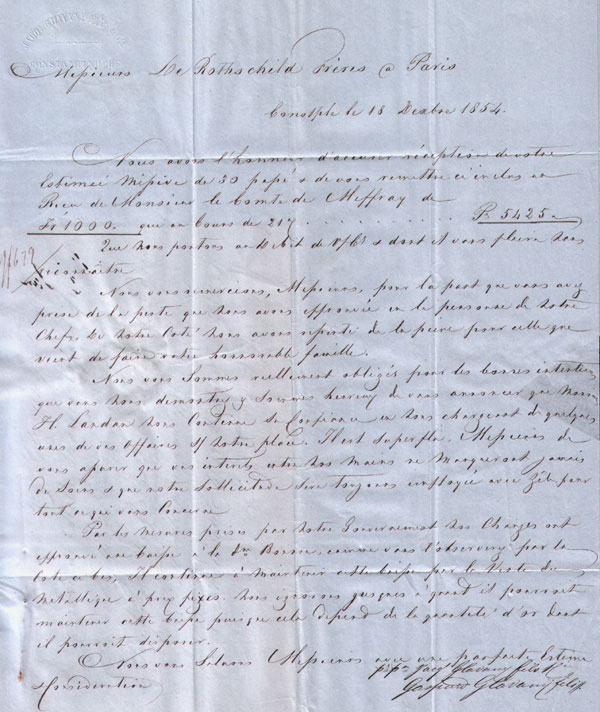 CONSTANTINOPLE
Messieurs De Rothschild Frères a Paris
Constple le 18 Dcbre 1854.
Nous avons l'honneur d'accuser réception de votre
Estimée Missive de 30 passé & de vous remettre ci inclus un
Recu de Monsieur le Comte de Meffray de
Fr 1000. que au Cours de 217 . . . . . . . . . . P. 5425.
Que nous portons au Debit de & dont il vous plaira nous
reconnaître
Nous vous remercions, Messieurs, pour la part que vous avez
prise de la perte que nous avons éprouvée en la personne de notre
Chef, de notre Coté nous avons de la peine pour celle que
vient de faire votre honorable famille.
Nous vous Sommes réellement obligés pour les bonnes intentions
que vous nous & Sommes heureux de vous annoncer que Monsr
H. Landau nous Continue Sa Confiance en nous chargeant de quelques
unes de vos Affaires S/ notre place. Il est Superflu, Messieurs de
vous assurer que vos interets entre nos mains ne Manqueront jamais
de Soins & que notre Sollicitude Sera toujours employée avec Zèle pour
tout ce qui vous Concerne
Par les Mesures prises par notre Gouvernement nos Changes ont
éprouvé une baisse à la Bourse, comme vous l'observerez par la
Cote ci bas, Il continue à Maintenir cette baisse par la Vente du
Metallique à prix fixes. Nous ignorons jusques a quand il pourrait
maintenir cette baisse puisque cela dépend de la quantité d'or dont
il pourrait disposer.
Nous vous Saluons Messieurs avec une parfaite Estime
& Considération
Glavany fils &
Gaspard Glavany fils